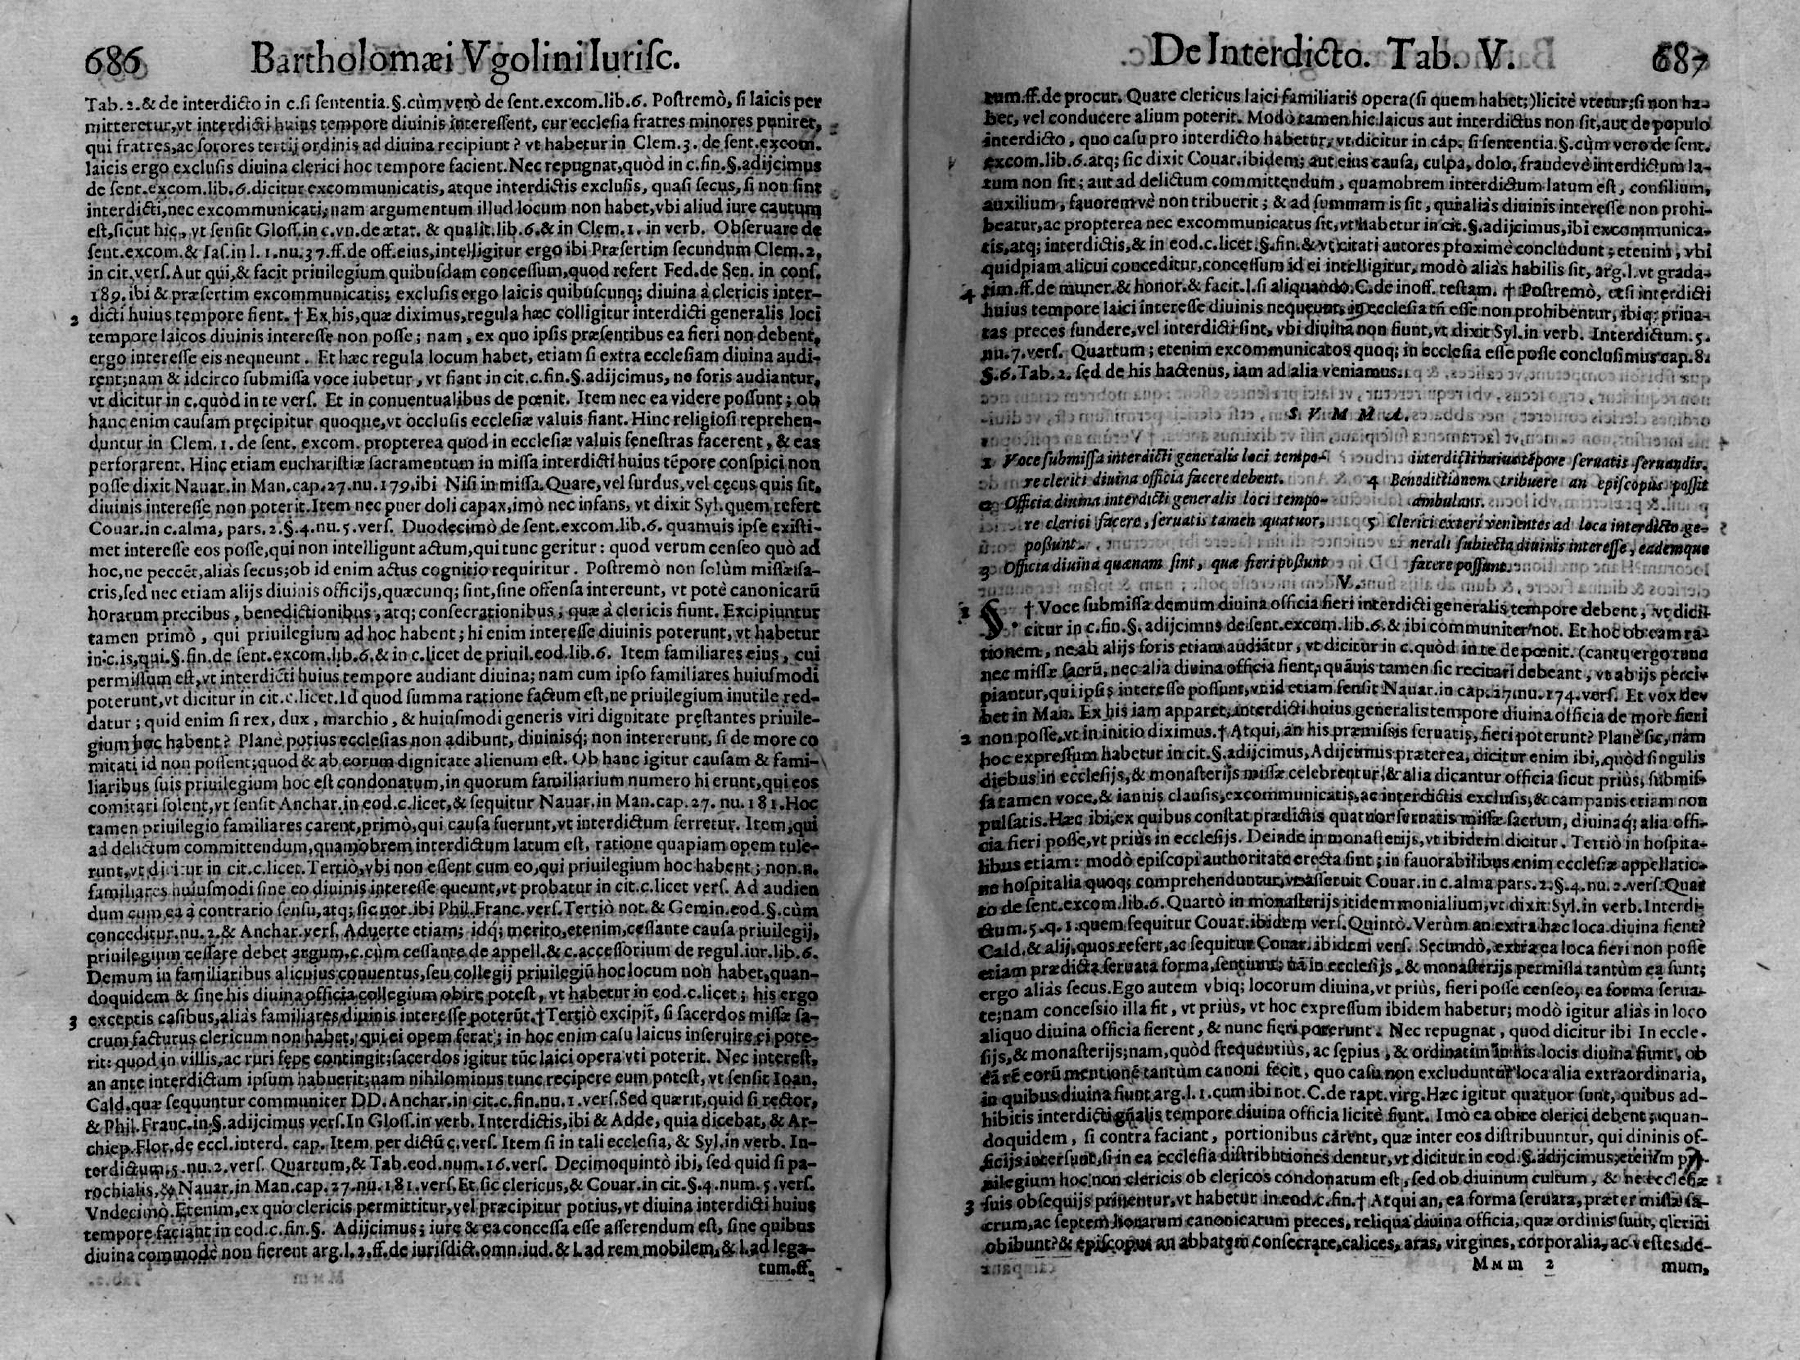 686 Bartholomæi Vgolini Iurisc.
Tab. 2. & de interdicto in c. si sententia. §. cùm verò de sent. excom. lib. 6. Postremò, si laicis per
mitteretur, vt interdicti huius tempore diuinis interessent, cur ecclesia fratres minores puniret,
qui fratres, ac sorores tertij ordinis ad diuina recipiunt? vt habetur in Clem. 3. de sent. excom.
laicis ergo exclusis diuina clerici hoc tempore facient. Nec repugnat, quòd in c. fin. §. adijcimus
de sent. excom. lib. 6. dicitur excommunicatis, atque interdictis exclusis, quasi secus, si non sint
interdicti, nec excommunicati; nam argumentum illud locum non habet, vbi aliud iure cautum
est, sicut hic, vt sensit Gloss. in c. vn. de ætat. & qualit. lib. 6. & in Clem. 1. in verb. Obseruare de
sent. excom. & Ias. in l. 1. nu. 37. ff. de off. eius, intelligitur ergo ibi Præsertim secundum Clem. 2,
in cit. vers. Aut qui, & facit priuilegium quibusdam concessum, quod refert Fed. de Sen. in cons.
189. ibi & præsertim excommunicatis; exclusis ergo laicis quibuscunq; diuina à clericis inter-
2 dicti huius tempore fient. † Ex his, quæ diximus, regula hæc colligitur interdicti generalis loci
tempore laicos diuinis interesse non posse; nam, ex quo ipsis præsentibus ea fieri non debent,
ergo interesse eis nequeunt. Et hæc regula locum habet, etiam si extra ecclesiam diuina audi-
rent; nam & idcirco submissa voce iubetur, vt fiant in cit. c. fin. §. adijcimus, ne foris audiantur,
vt dicitur in c. quòd in te vers. Et in conuentualibus de pœnit. Item nec ea videre possunt; ob
hanc enim causam pręcipitur quoque, vt occlusis ecclesiæ valuis fiant. Hinc religiosi reprehen-
duntur in Clem. 1. de sent. excom. propterea quod in ecclesiæ valuis fenestras facerent, & eas
perforarent. Hinc etiam eucharistiæ sacramentum in missa interdicti huius tēpore conspici non
posse dixit Nauar. in Man. cap. 27. nu. 179. ibi Nisi in missa. Quare, vel surdus, vel cęcus quis sit,
diuinis interesse non poterit. Item nec puer doli capax, imò nec infans, vt dixit Syl. quem refert
Couar. in c. alma, pars. 2. §. 4. nu. 5. vers. Duodecimò de sent. excom. lib. 6. quamuis ipse existi-
met interesse eos posse, qui non intelligunt actum, qui tunc geritur: quod verum censeo quò ad
hoc, ne peccēt, aliàs secus; ob id enim actus cognitio requiritur. Postremò non solùm missæ sa-
cris, sed nec etiam alijs diuinis officijs, quæcunq; sint, sine offensa intereunt, vt potè canonicarū
horarum precibus, benedictionibus, atq; consecrationibus; quæ à clericis fiunt. Excipiuntur
tamen primò, qui priuilegium ad hoc habent; hi enim interesse diuinis poterunt, vt habetur
in c. is, qui. §. fin. de sent. excom. lib. 6. & in c. licet de priuil. eod. lib. 6. Item familiares eius, cui
permissum est, vt interdicti huius tempore audiant diuina; nam cum ipso familiares huiusmodi
poterunt, vt dicitur in cit. c. licet. Id quod summa ratione factum est, ne priuilegium inutile red-
datur; quid enim si rex, dux, marchio, & huiusmodi generis viri dignitate pręstantes priuile-
gium hoc habent? Planè potius ecclesias non adibunt, diuinisq; non intererunt, si de more co
mitati id non possent; quod & ab eorum dignitate alienum est. Ob hanc igitur causam & fami-
liaribus suis priuilegium hoc est condonatum, in quorum familiarium numero hi erunt, qui eos
comitari solent, vt sensit Anchar. in eod. c. licet, & sequitur Nauar. in Man. cap. 27. nu. 181. Hoc
tamen priuilegio familiares carent, primò, qui causa fuerunt, vt interdictum ferretur. Item, qui
ad delictum committendum, quamobrem interdictum latum est, ratione quapiam opem tule-
runt, vt dicitur in cit. c. licet. Tertiò, vbi non essent cum eo, qui priuilegium hoc habent; non. n.
familiares huiusmodi sine eo diuinis interesse queunt, vt probatur in cit. c. licet vers. Ad audien
dum cum ea à contrario sensu, atq; sic not. ibi Phil. Franc. vers. Tertiò not. & Gemin. eod. §. cùm
conceditur. nu. 2. & Anchar. vers. Aduerte etiam; idq; merito, etenim, cessante causa priuilegij,
priuilegium cessare debet argum. c. cùm cessante de appell. & c. accessorium de regul. iur. lib. 6.
Demum in familiaribus alicuius conuentus, seu collegij priuilegiū hoc locum non habet, quan-
doquidem & sine his diuina officia collegium obire potest, vt habetur in eod. c. licet; his ergo
3 exceptis casibus, aliàs familiares diuinis interesse poterūt. † Tertiò excipit, si sacerdos missæ sa-
crum facturus clericum non habet, qui ei opem ferat; in hoc enim casu laicus inseruire ei pote-
rit: quod in villis, ac ruri sępe contingit; sacerdos igitur tūc laici opera vti poterit. Nec interest,
an ante interdictum ipsum habuerit; nam nihilominus tunc recipere eum potest, vt sensit Ioan.
Cald. quæ sequuntur communiter DD. Anchar. in cit. c. fin. nu. 1. vers. Sed quærit, quid si rector,
& Phil. Franc. in §. adijcimus vers. In Gloss. in verb. Interdictis, ibi & Adde, quia dicebat, & Ar-
chiep. Flor. de eccl. interd. cap. Item per dictū c. vers. Item si in tali ecclesia, & Syl. in verb. In-
terdictum. 5. nu. 2. vers. Quartum, & Tab. eod. num. 16. vers. Decimoquintò ibi, sed quid si pa-
rochialis, & Nauar. in Man. cap. 27. nu. 181. vers. Et sic clericus, & Couar. in cit. §. 4. num. 5. vers.
Vndecimò. Etenim, ex quo clericis permittitur, vel præcipitur potius, vt diuina interdicti huius
tempore faciant in eod. c. fin. §. Adijcimus; iure & ea concessa esse asserendum est, sine quibus
diuina commodè non fierent arg. l. 2. ff. de iurisdict. omn. iud. & l. ad rem mobilem, & l. ad lega-
tum. ff.
De Interdicto. Tab. V. 687
tum. ff. de procur. Quare clericus laici familiaris opera (si quem habet;) licitè vtetur; si non ha-
bet, vel conducere alium poterit. Modò tamen hic laicus aut interdictus non sit, aut de populo
interdicto, quo casu pro interdicto habetur, vt dicitur in cap. si sententia. §. cùm vero de sent.
excom. lib. 6. atq; sic dixit Couar. ibidem; aut eius causa, culpa, dolo, fraudevè interdictum la-
tum non sit; aut ad delictum committendum, quamobrem interdictum latum est, consilium,
auxilium, fauoremvè non tribuerit; & ad summam is sit, qui aliàs diuinis interesse non prohi-
beatur, ac propterea nec excommunicatus sit, vt habetur in cit. §. adijcimus, ibi excommunica-
tis, atq; interdictis, & in eod. c. licet. §. fin. & vt citati autores proximè concludunt; etenim, vbi
quidpiam alicui conceditur, concessum id ei intelligitur, modò aliàs habilis sit, arg. l. vt grada-
4 tim. ff. de muner. & honor. & facit. l. si aliquando. C. de inoff. testam. † Postremò, etsi interdicti
huius tempore laici interesse diuinis nequeunt, in ecclesia tñ esse non prohibentur, ibiq; priua-
tas preces fundere, vel interdicti sint, vbi diuina non fiunt, vt dixit Syl. in verb. Interdictum. 5.
nu. 7. vers. Quartum; etenim excommunicatos quoq; in ecclesia esse posse conclusimus cap. 8.
§. 6. Tab. 2. sed de his hactenus, iam ad alia veniamus.
S V M M A.
1 Voce submissa interdicti generalis loci tempo-
re clerici diuina officia facere debent.
2 Officia diuina interdicti generalis loci tempo-
re clerici facere, seruatis tamen quatuor,
possunt.
3 Officia diuina quænam sint, quæ fieri possunt
interdicti huius tēpore seruatis seruandis.
4 Benedictionem tribuere an episcopus possit
ambulans.
5 Clerici exteri venientes ad loca interdicto ge-
nerali subiecta diuinis interesse, eademque
facere possunt.
V.
1 S. † Voce submissa demum diuina officia fieri interdicti generalis tempore debent, vt dicit
citur in c. fin. §. adijcimns de sent. excom. lib. 6. & ibi communiter not. Et hoc ob eam ra-
tionem, ne ab alijs foris etiam audiātur, vt dicitur in c. quòd in te de pœnit. (cantu ergo tunc
nec missæ sacrū, nec alia diuina officia fient; quāuis tamen sic recitari debeant, vt ab ijs perci-
piantur, qui ipsis interesse possunt, vt id etiam sensit Nauar. in cap. 27. nu. 174. vers. Et vox de
bet in Man. Ex his iam apparet, interdicti huius generalis tempore diuina officia de more fieri
2 non posse, vt in initio diximus. † Atqui, an his præmissis seruatis, fieri poterunt? Planè sic, nam
hoc expressum habetur in cit. §. adijcimus, Adijcimus præterea, dicitur enim ibi, quòd singulis
diebus in ecclesijs, & monasterijs missæ celebrentur, & alia dicantur officia sicut priùs; submis-
sa tamen voce, & ianuis clausis, excommunicatis, ac interdictis exclusis, & campanis etiam non
pulsatis. Hæc ibi, ex quibus constat prædictis quatuor seruatis missæ sacrum, diuinaq; alia offi-
cia fieri posse, vt priùs in ecclesijs. Deinde in monasterijs, vt ibidem dicitur. Tertiò in hospita-
libus etiam: modò episcopi authoritate erecta sint; in fauorabilibus enim ecclesiæ appellatio-
ne hospitalia quoq; comprehenduntur, vt asseruit Couar. in c. alma pars. 2. §. 4. nu. 2. vers. Quar
to de sent. excom. lib. 6. Quartò in monasterijs itidem monialium, vt dixit Syl. in verb. Interdi-
ctum. 5. q. 1. quem sequitur Couar. ibidem vers. Quintò. Verùm an extra hæc loca diuina fient?
Cald. & alij, quos refert, ac sequitur Couar. ibidem vers. Secundò, extra ea loca fieri non posse
etiam prædicta seruata forma, sentiunt; nā in ecclesijs, & monasterijs permissa tantùm ea sunt;
ergo aliàs secus. Ego autem vbiq; locorum diuina, vt priùs, fieri posse censeo, ea forma serua-
te; nam concessio illa fit, vt priùs, vt hoc expressum ibidem habetur; modò igitur aliàs in loco
aliquo diuina officia fierent, & nunc fieri poterunt. Nec repugnat, quod dicitur ibi In eccle-
sijs, & monasterijs; nam, quòd frequentiùs, ac sępius, & ordinatim in his locis diuina fiunt, ob
eā rē eorū mentionē tantùm canoni fecit, quo casu non excluduntur loca alia extraordinaria,
in quibus diuina fiunt arg. l. 1. cum ibi not. C. de rapt. virg. Hæc igitur quatuor sunt, quibus ad-
hibitis interdicti gñalis tempore diuina officia licitè fiunt. Imò ea obire clerici debent; quan-
doquidem, si contra faciant, portionibus carent, quæ inter eos distribuuntur, qui dininis of-
ficijs intersunt, si in ea ecclesia distributiones dentur, vt dicitur in eod. §. adijcimus; etenim
priuilegium hoc non clericis ob clericos condonatum est, sed ob diuinum cultum, & ne ecclesiæ
3 suis obsequijs priuentur, vt habetur in eod. c. fin. † Atqui an, ea forma seruata, præter missæ sa-
crum, ac septem horarum canonicarum preces, reliqua diuina officia, quæ ordinis sunt, clerici
obibunt? & episcopus an abbatem consecrare, calices, aras, virgines, corporalia, ac vestes de-
Mmm 2 mum,